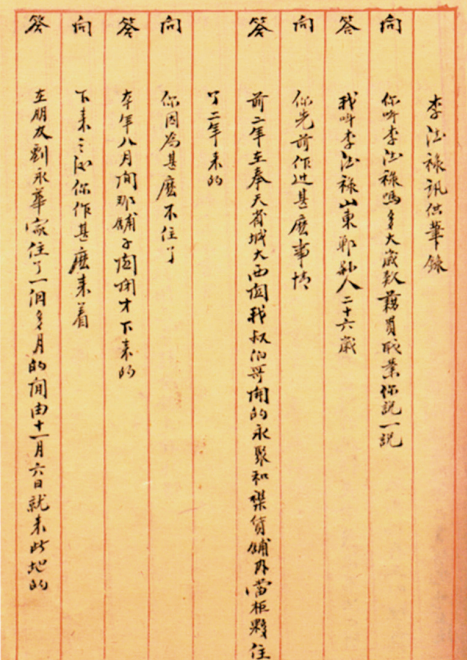 李治祿訊供筆錄
問 你叫李治祿嗎多大歲數籍貫職業你說一說
答 我叫李治祿山東鄆城人二十六歲
問 你先前作过甚麼事情
答 前二年在奉天省城大西関我叔伯哥開的永聚和襍貨舖內當柜夥住
了二年来的
問 你因為甚麼不住了
答 本年八月間那舖子関閉才下来的
問 下来之後你作甚麼来着
答 在朋友劉永華家住了一個多月的閒由十一月六日就来此地的